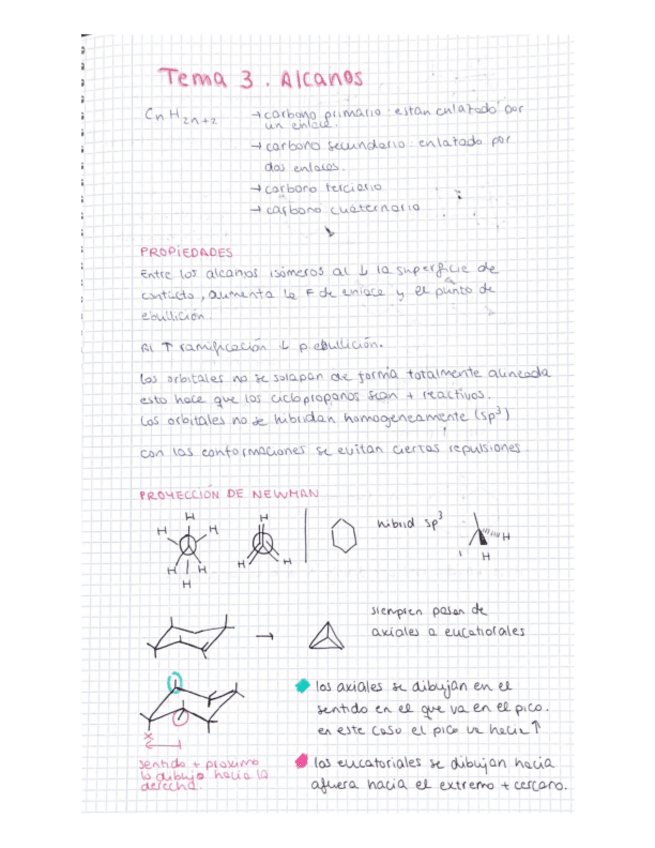 Tema 3. Alcanos
CnH2n+2 → carbono primario: están enlazado por
un enlace.
→ carbono secundario: enlazado por
dos enlaces.
→ carbono terciario
→ carbono cuaternario
PROPIEDADES
Entre los alcanos isómeros al ↓ la superficie de
contacto, aumenta la F de enlace y el punto de
ebullición.
Al ↑ ramificación ↓ p ebullición.
Los orbitales no se solapan de forma totalmente alineada
esto hace que los ciclopropanos sean + reactivos.
Los orbitales no se hibridan homogeneamente (sp³)
con las conformaciones se evitan ciertas repulsiones
PROYECCIÓN DE NEWMAN
H H H H H H
H H H
hibrid sp³
H
H
siempren pasan de
axiales a eucatoriales
los axiales se dibujan en el
sentido en el que va en el pico.
en este caso el pico va hacia ↑
sentido + proximo
lo dibujo hacia la
derecha.
los eucatoriales se dibujan hacia
afuera hacia el extremo + cercano.